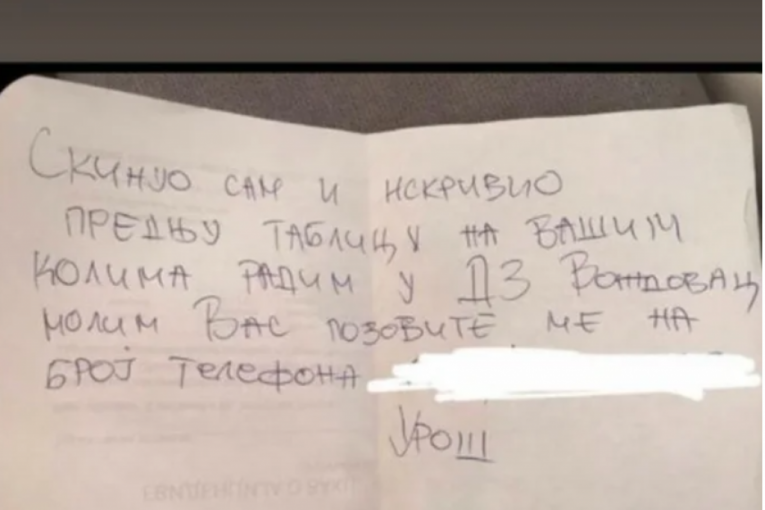 Скинуо сам и искривио
предњу таблицу на вашим
колима радим у ДЗ Вождовац
молим Вас позовите ме на
број телефона
Урош